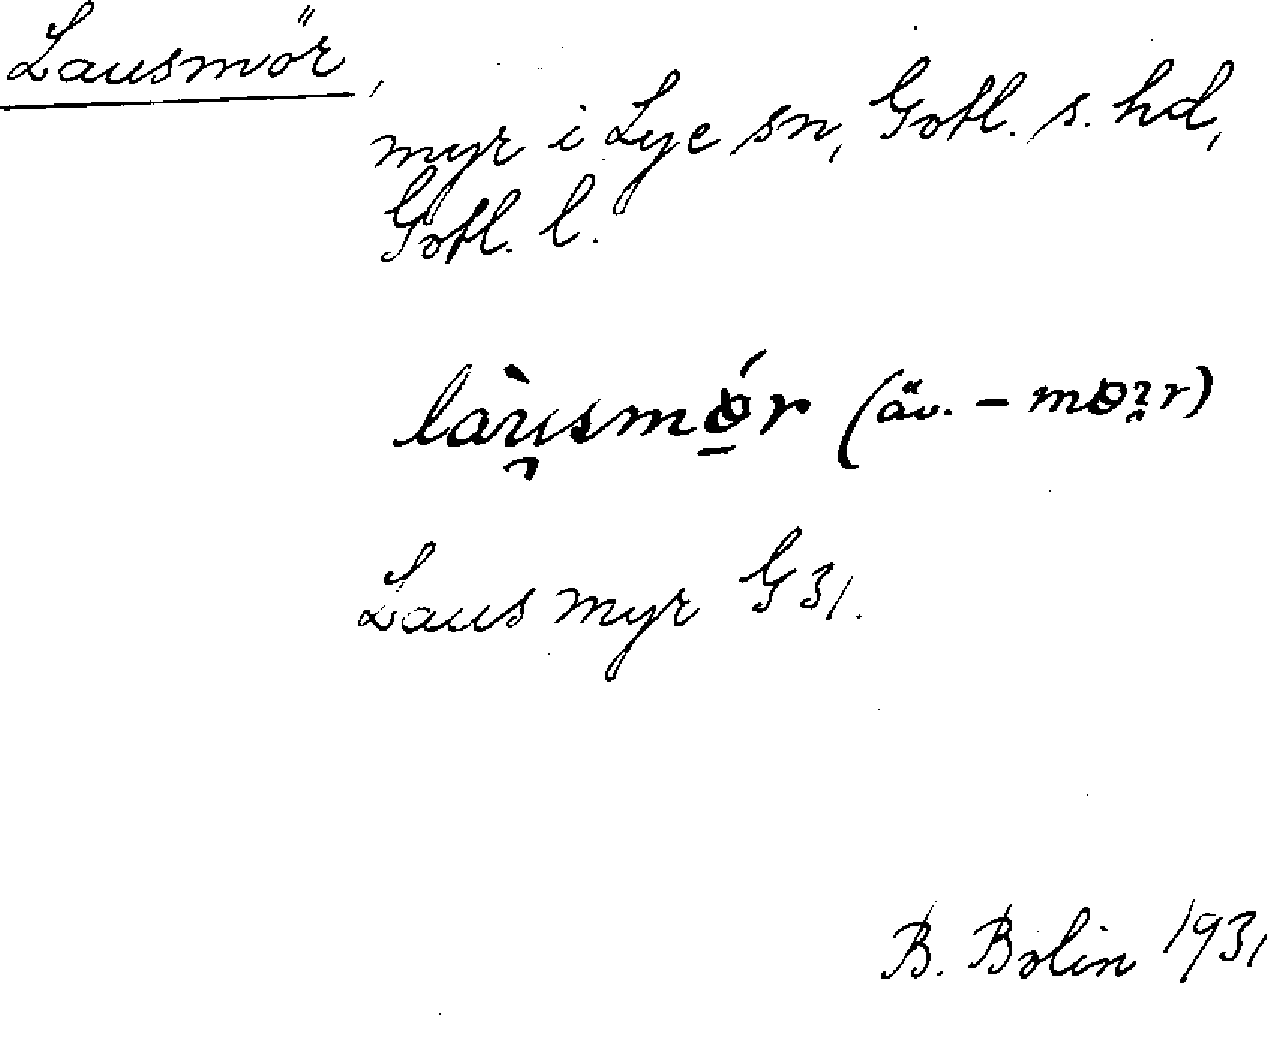 Lausmör,
myr i Lye sn, Gotl. s. hd,
Gotl. l.
làu̯smǿ̱r (äv. – møʔ̣r)
Laus myr G 31.
B. Bolin 1931